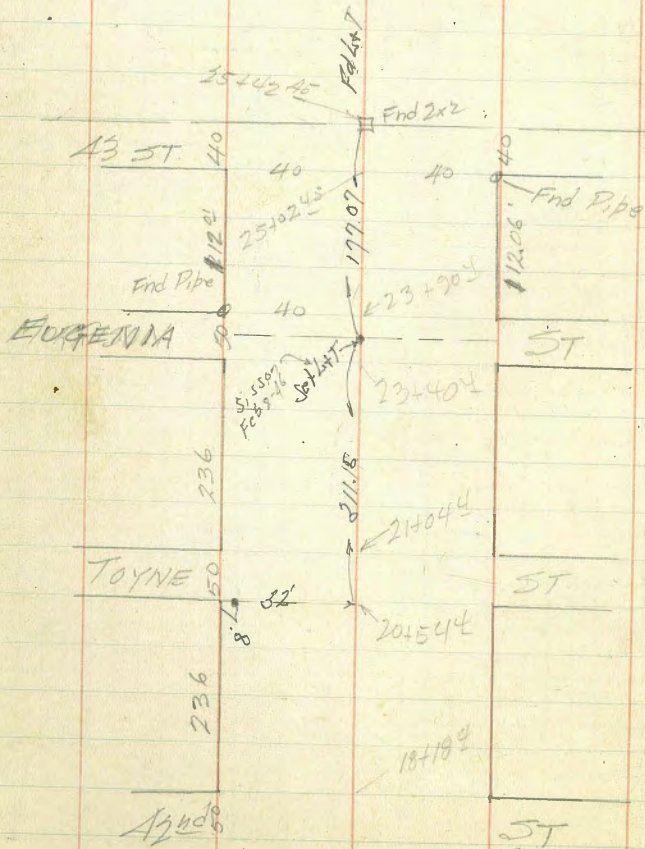 Fd L&T
25+42 45
Fnd 2x2
43 ST.
40
40
40
40
Fnd Pipe
25+02 45
177.07
112.06'
Fnd Pipe
23+90 4
40
EUGENIA
50
ST
Set L&T
23+40 4
236
311.18
21+04 4
TOYNE
50
32'
ST
8'
20+54 4
236
18+18 4
42nd
50
ST